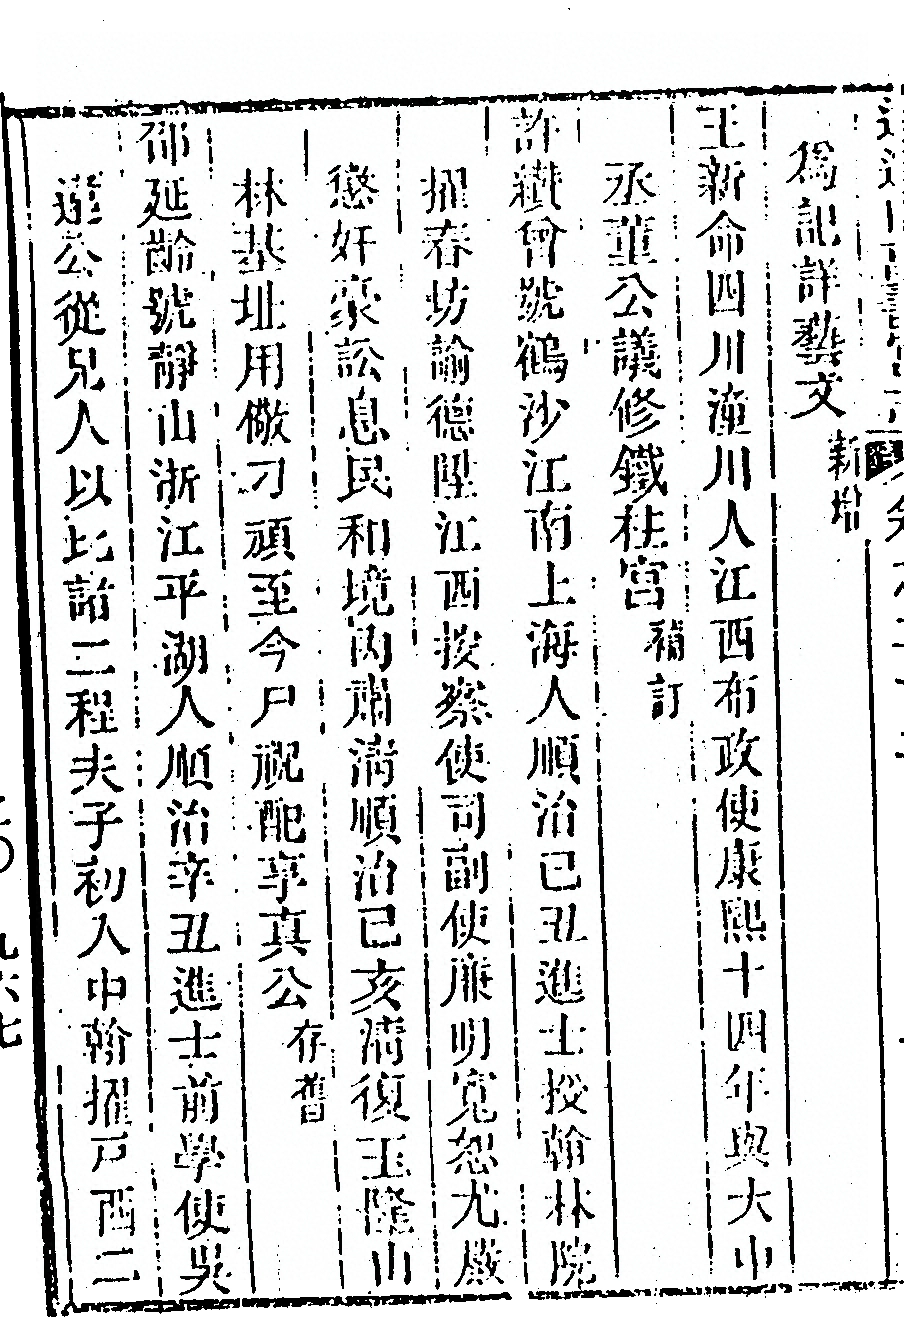 為記詳藝文新增
王新命四川潼川人江西布政使康熙十四年與大中
丞董公議修鐵柱宮補訂
許纘曾號鶴沙江南上海人順治己丑進士授翰林院
擢春坊諭德陞江西按察使司副使廉明寬恕尤嚴
懲奸豪訟息民和境內肅清順治己亥清復玉隆山
林基址用儆刁頑至今尸祝配享真公存舊
邵延齡號靜山浙江平湖人順治辛丑進士前學使吳
遵公從兄人以比諸二程夫子初入中翰擢戶酉二
九六七